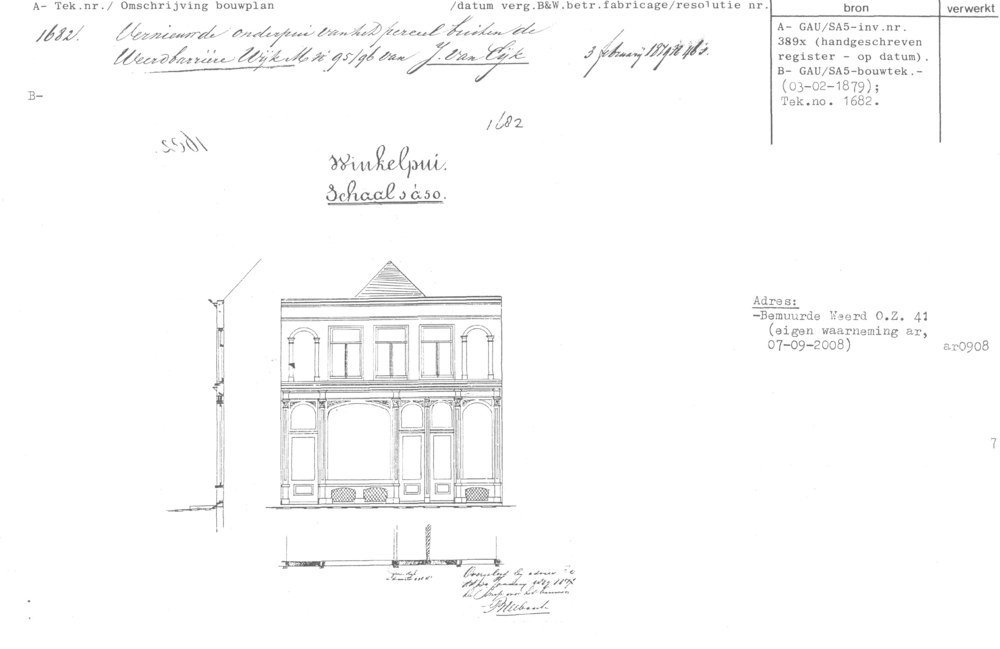 A- Tek.nr./ Omschrijving bouwplan /datum verg.B&W.betr.fabricage/resolutie nr. bron verwerkt
1682. Vernieuwde onderpui van het perceel buiten de
Weerdbarrière Wijk M No 95/96 van J. van 3 februarij 1879
A- GAU/SA5-inv.nr.
389x (handgeschreven
register - op datum).
B- GAU/SA5-bouwtek.-
(03-02-1879);
Tek.no. 1682.
B-
1682
1682.
Winkelpui.
Schaal 1 à 50.
Adres:
-Bemuurde Weerd O.Z. 41
(eigen waarneming ar,
07-09-2008) ar0908
7